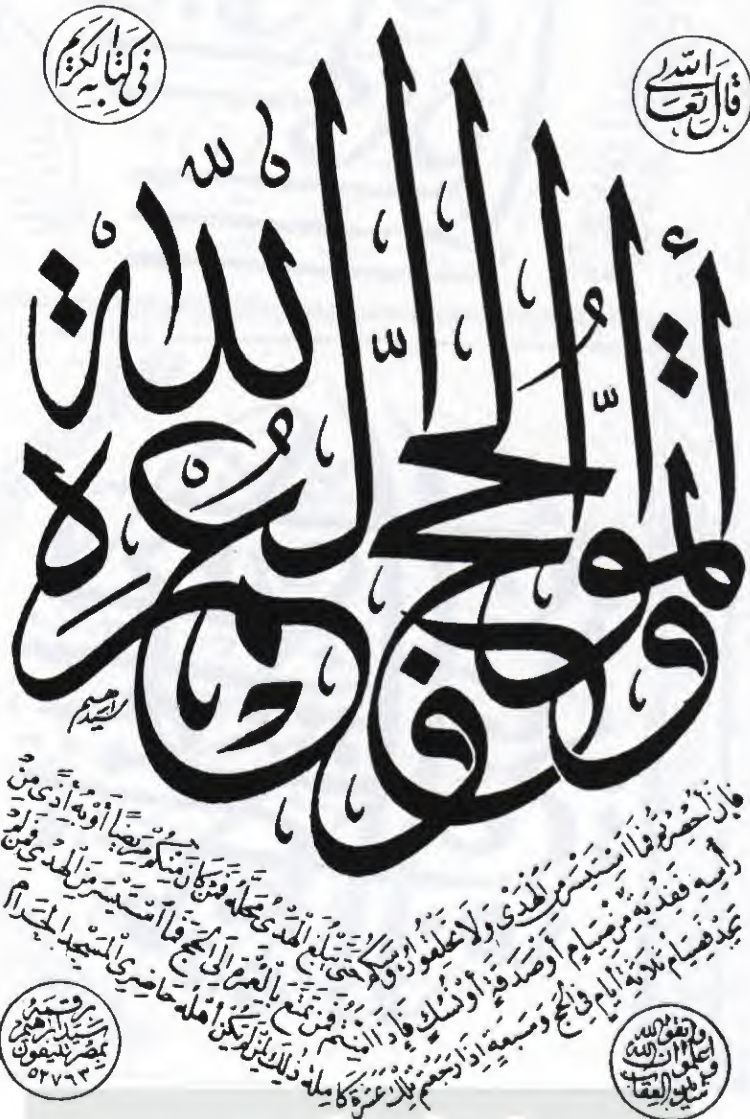 قال الله تعالى
في كتابه الكريم
وأتموا الحج والعمرة لله
سيد إبراهيم
فإن أحصرتم فما استيسر من الهدى ولا تحلقوا رؤوسكم حتى يبلغ الهدى محله فمن كان منكم مريضا أو به أذى من
رأسه ففدية من صيام أو صدقة أو نسك فإذا أمنتم فمن تمتع بالعمرة إلى الحج فما استيسر من الهدى فمن لم
يجد فصيام ثلاثة أيام في الحج وسبعة إذا رجعتم تلك عشرة كاملة ذلك لمن لم يكن أهله حاضرى المسجد الحرام
واتقوا الله
واعلموا أن الله
شديد العقاب
رقمه
سيد إبراهيم
بمصر تليفون
٥٢٧٦٣